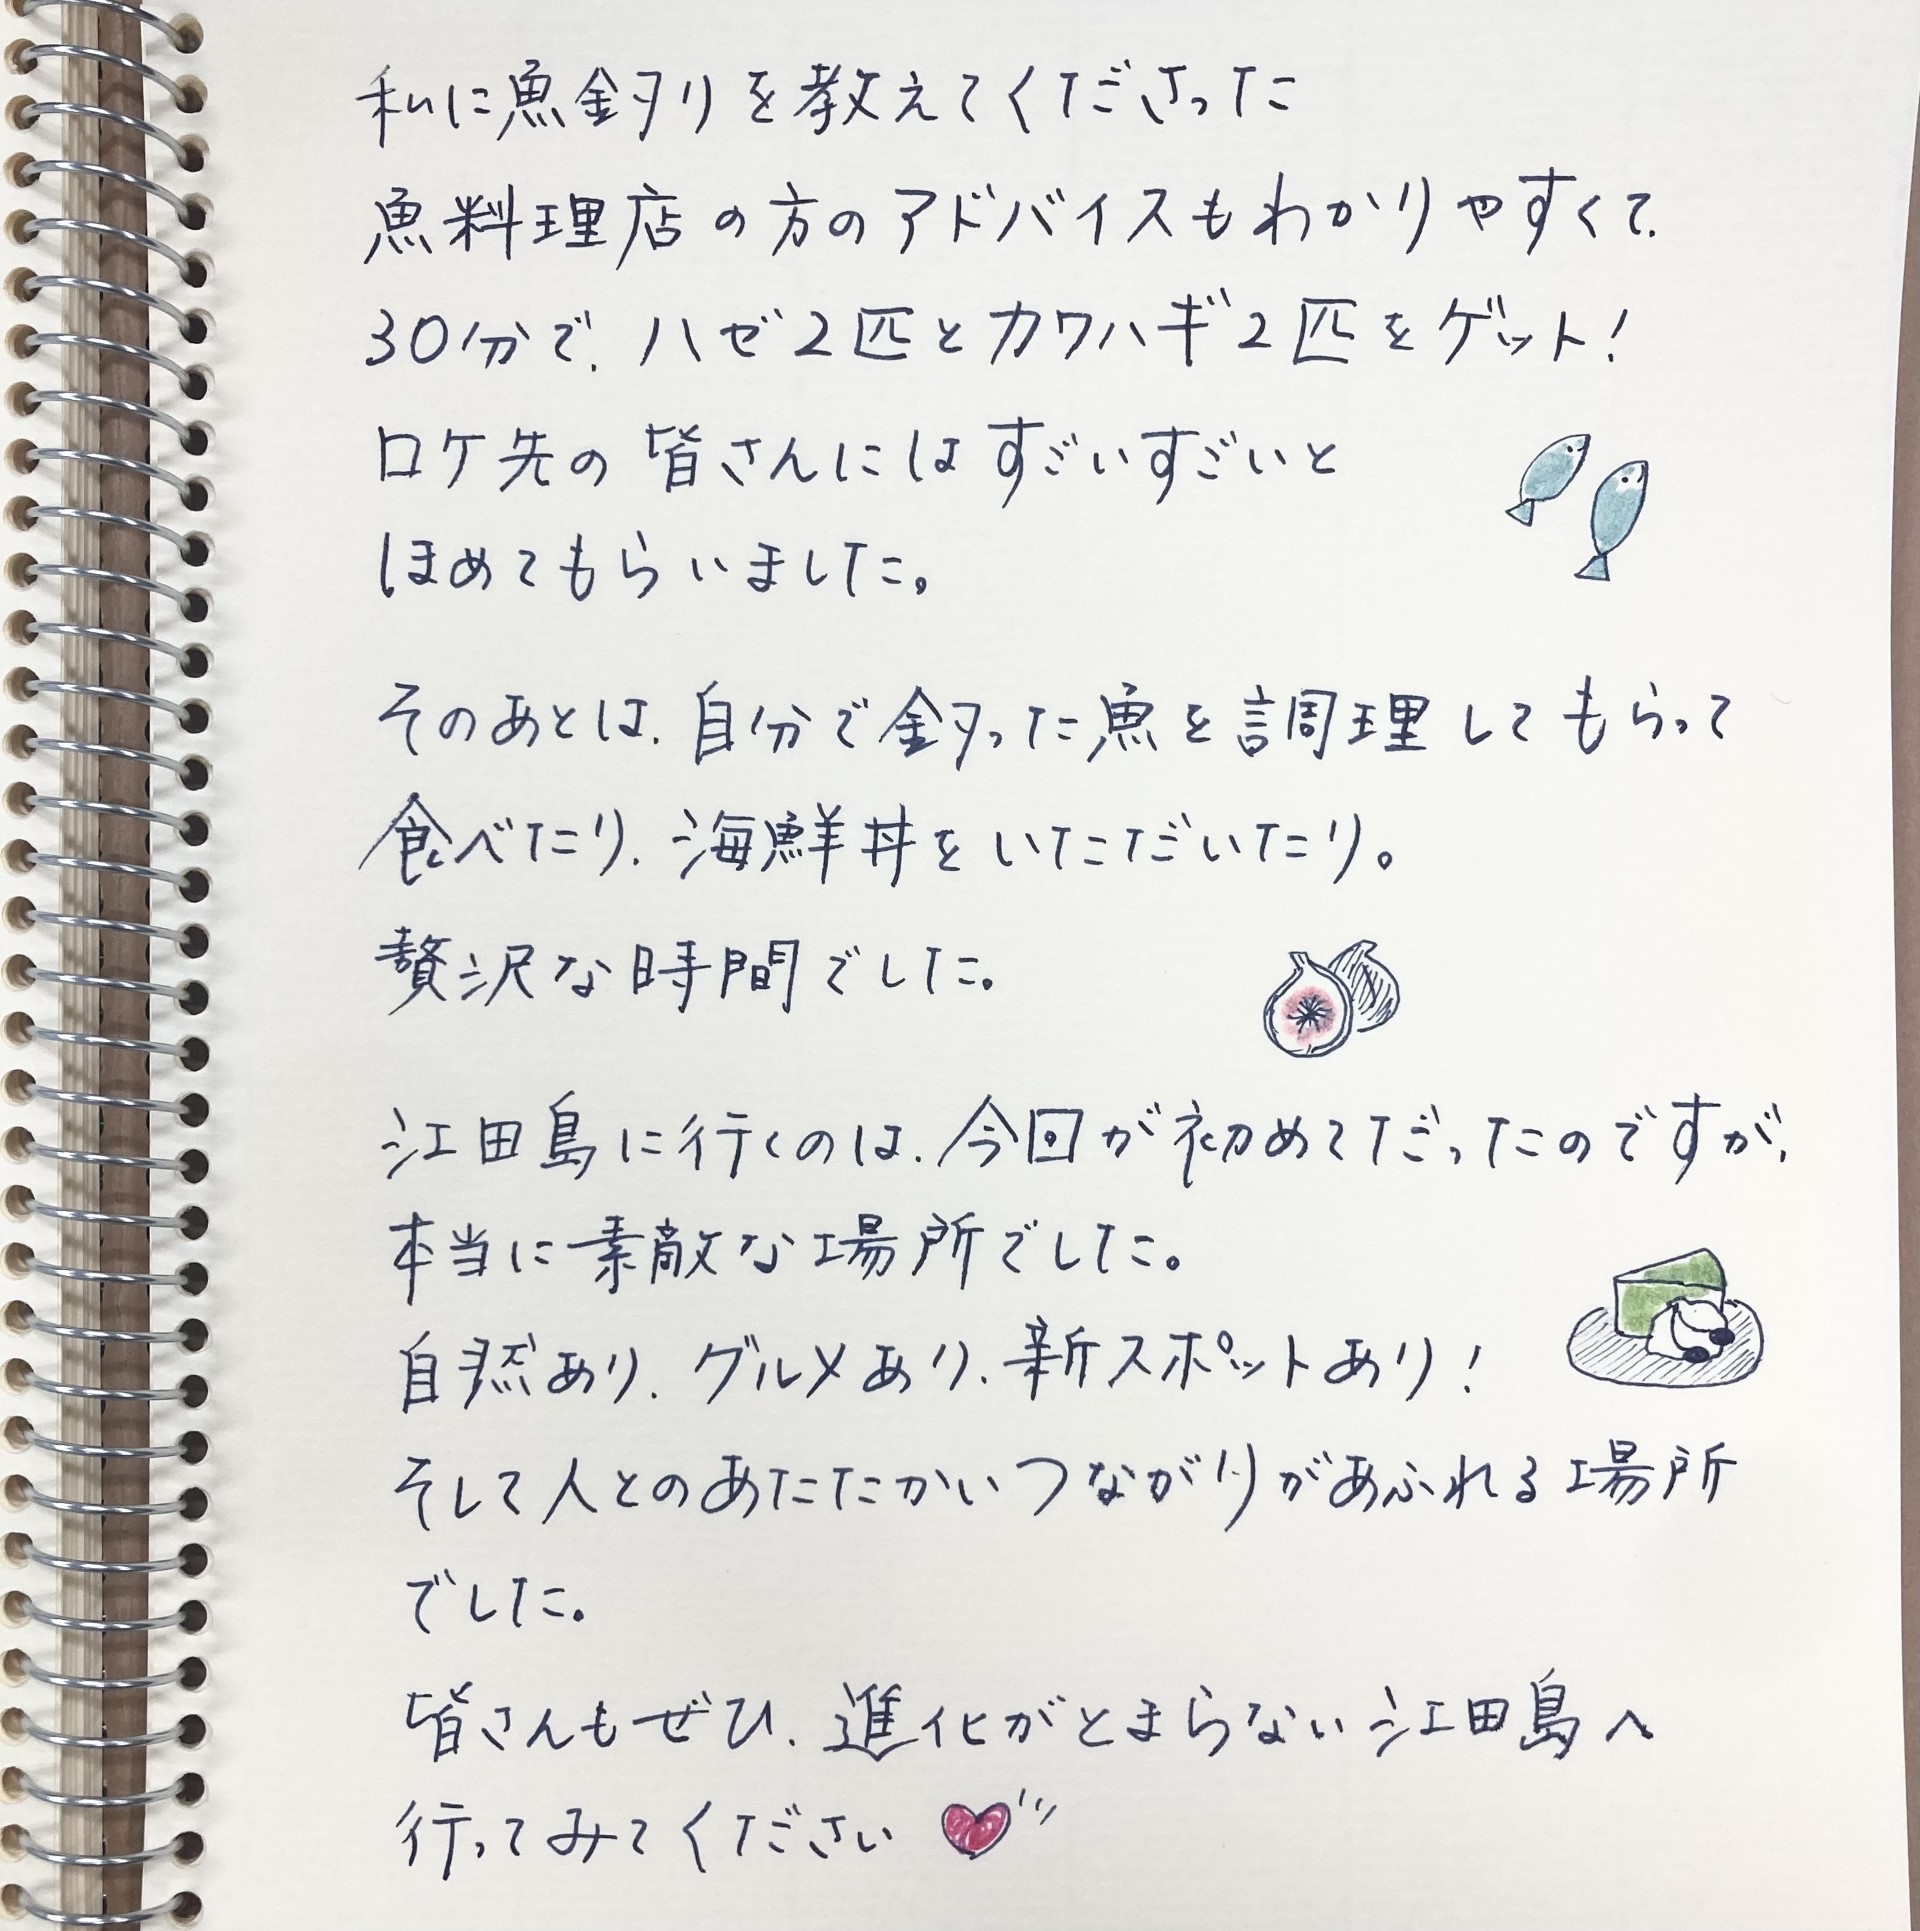 私に魚釣りを教えてくださった
魚料理店の方のアドバイスもわかりやすくて、
30分で、ハゼ2匹とカワハギ2匹をゲット！
ロケ先の皆さんにはすごいすごいと
ほめてもらいました。
そのあとは、自分で釣った魚を調理してもらって
食べたり、海鮮丼をいただいたり。
贅沢な時間でした。
江田島に行くのは、今回が初めてだったのですが、
本当に素敵な場所でした。
自然あり、グルメあり、新スポットあり！
そして人とのあたたかいつながりがあふれる場所
でした。
皆さんもぜひ、進化がとまらない江田島へ
行ってみてください